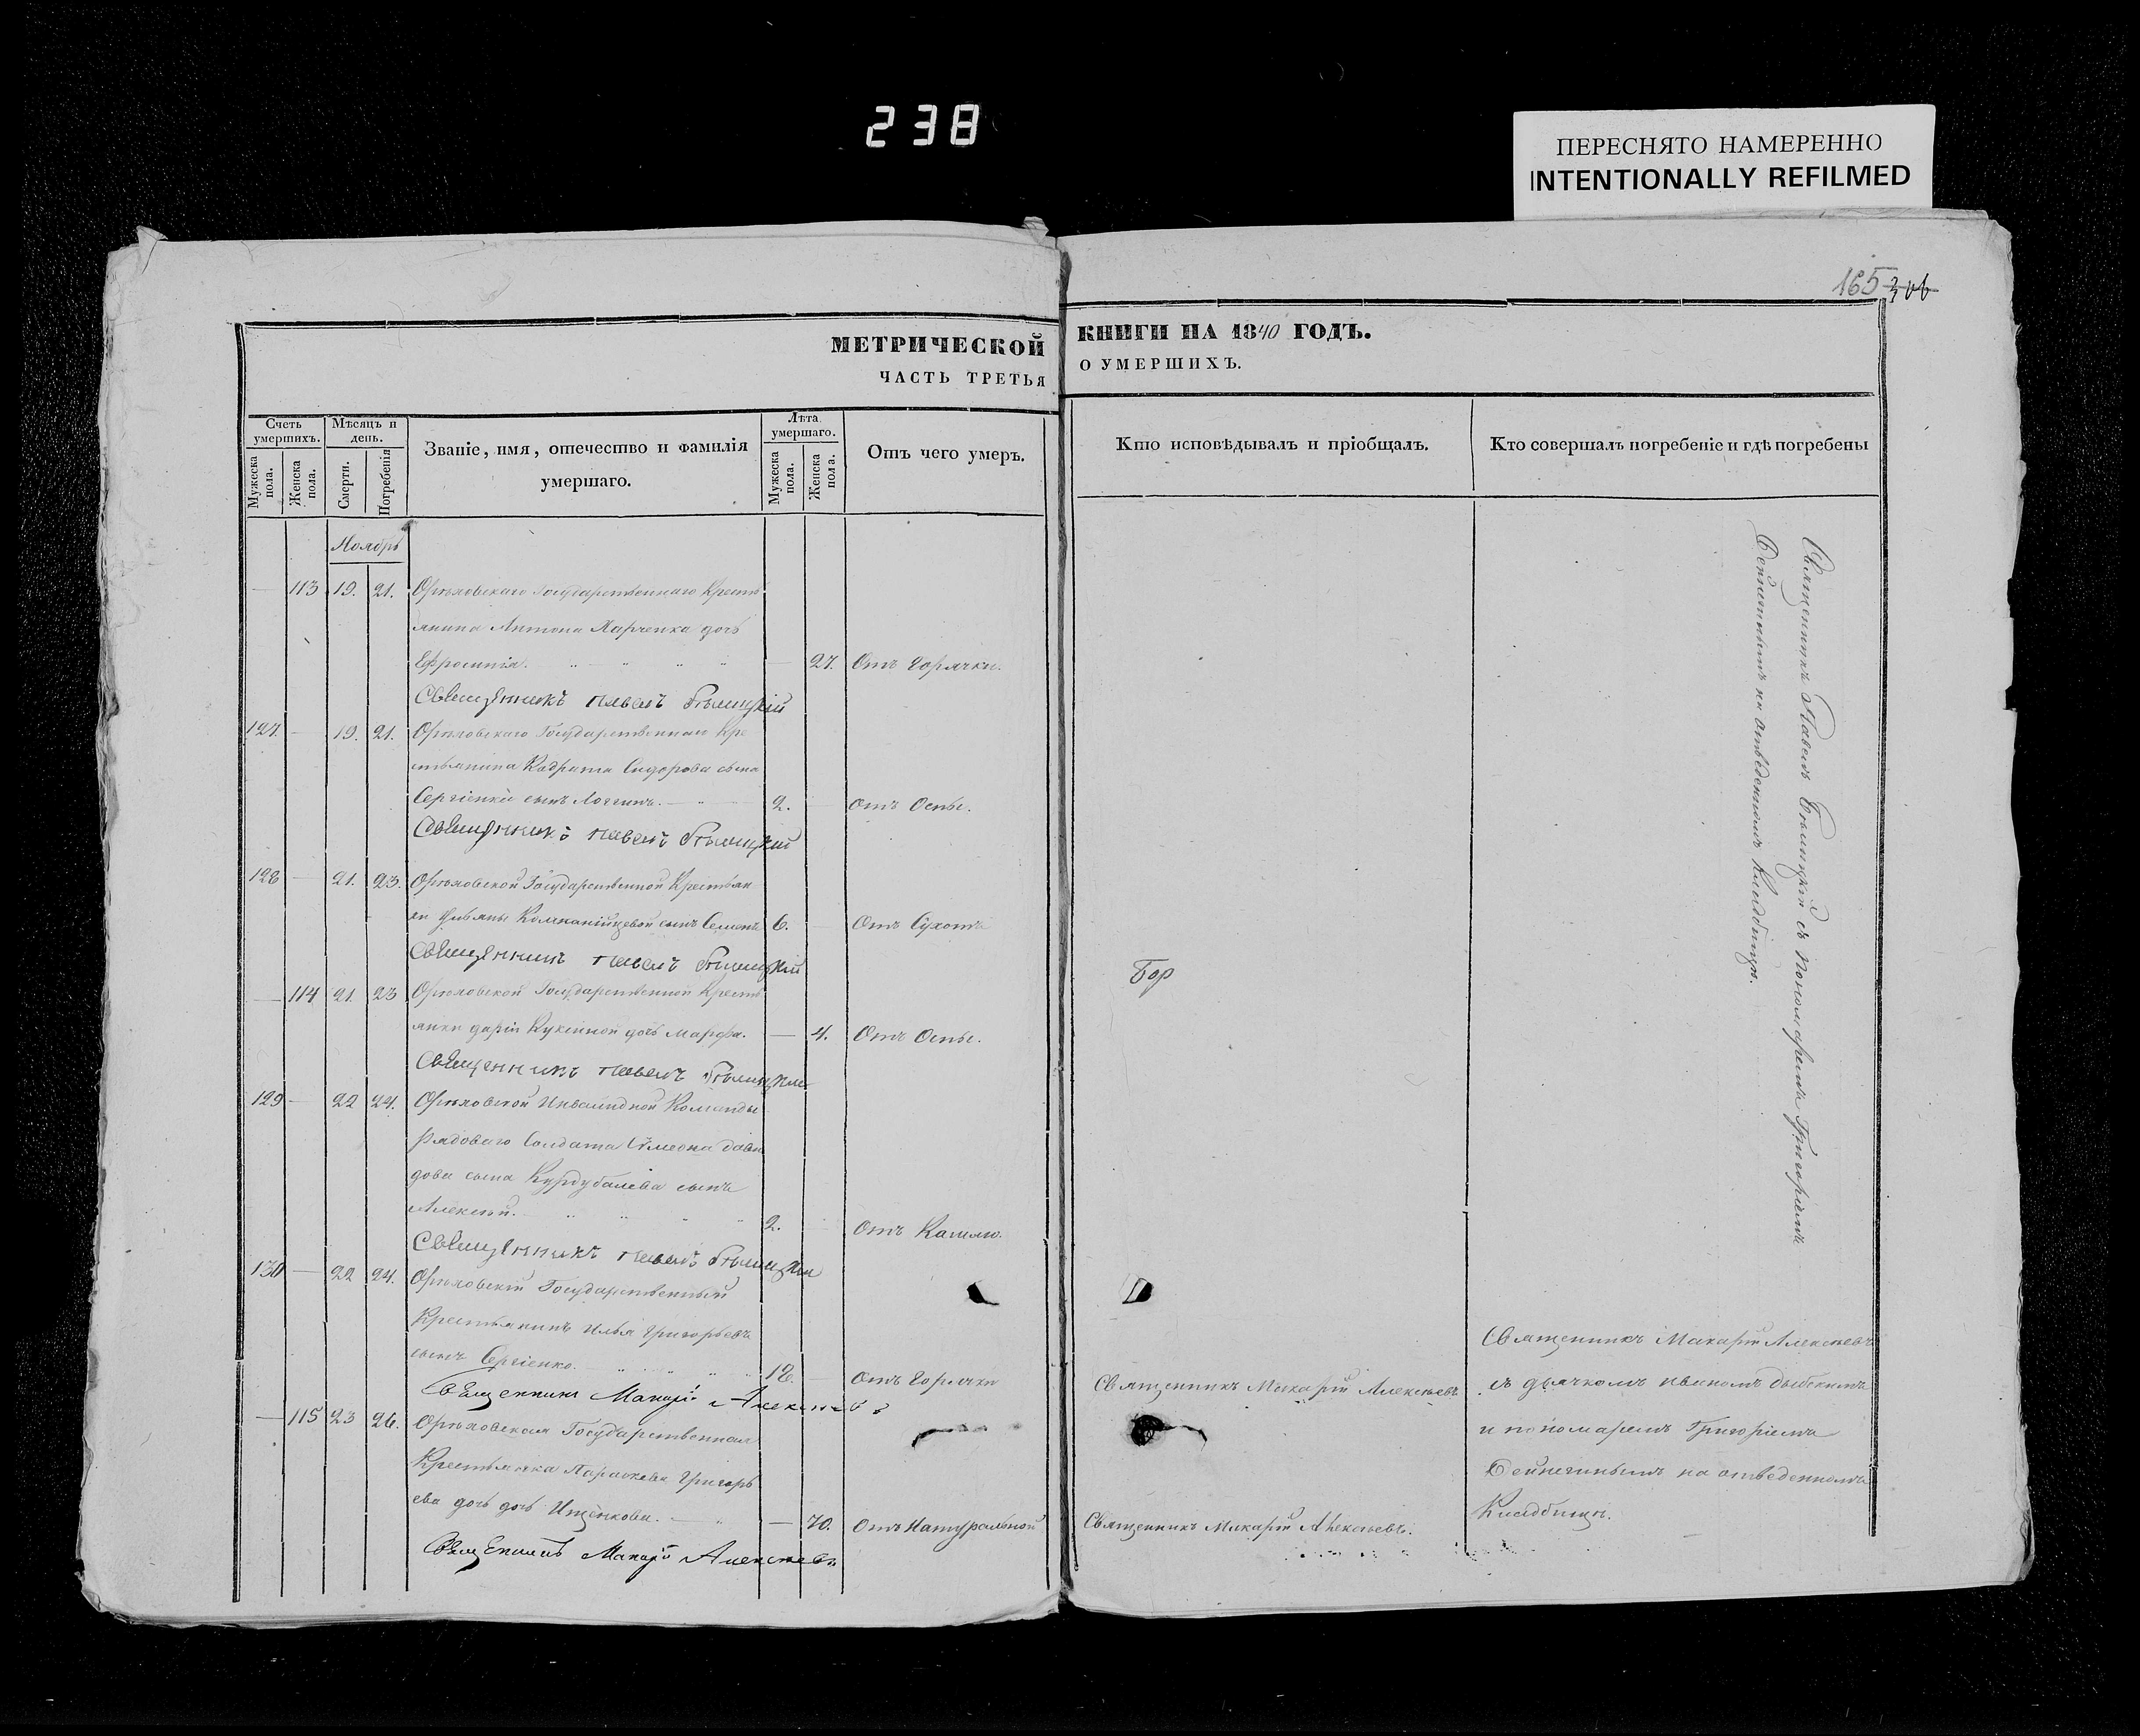 238
ПЕРЕСНЯТО НАМЕРЕННО
INTENTIONALLY REFILMED
165 306
МЕТРИЧЕСКОЙ КНИГИ НА 1840 ГОДЪ.
ЧАСТЬ ТРЕТЬЯ О УМЕРШИХЪ.
Счетъ умершихъ.
Мужеска пола.
Женска пола.
Мѣсяцъ и день.
Смерти.
Погребенія
Званіе, имя, отечество и фамилія
умершаго.
Лѣта умершаго.
Мужеска пола.
Женска пола.
Отъ чего умеръ.
Кто исповѣдывалъ и пріобщалъ.
Кто совершалъ погребеніе и гдѣ погребены
Ноябрь
— 113 19. 21. Орѣховскаго Государственнаго Кресть
янина Антона Харченка дочь
Ефросинія. — 27. Отъ Горячки.
Священникъ Павелъ Бѣлицкій
127. — 19. 21. Орѣховскаго Государственнаго Кре
стьянина Кодрата Сидорова сына
Сергіенка сынъ Логгинъ. — 2. — Отъ Оспы.
Священникъ Павелъ Бѣлицкій
128 — 21. 23. Орѣховской Государственной Крестьян
ки Ульяны Компанійцевой сынъ Семенъ 6. — Отъ Сухотъ
Священникъ Павелъ Бѣлицкій
— 114 21. 23 Орѣховской Государственной Кресть
янки Даріи Кукиной дочь Марфа. — 4. Отъ Оспы.
Священникъ Павелъ Бѣлицкій
129 — 22 24. Орѣховской Инвалидной Команды
Рядоваго Солдата Симеона Дави
дова сына Курдубалева сынъ
Алексѣй. 2. Отъ Кашлю.
Священникъ Павелъ Бѣлицкій
130 — 22 24. Орѣховскій Государственный
Крестьянинъ Илья Григорьевъ
сынъ Сергіенко. 18. — Отъ Горячки
Священникъ Макарій Алексѣевъ
— 115 23 26. Орѣховская Государственная
Крестьянка Параскева Григорь
ева дочь дочь Ищенкова. — 70. Отъ Натуральной
Священникъ Макарій Алексѣевъ
Бор
Священникъ Макарій Алексѣевъ
Священникъ Макарій Алексѣевъ.
Священникъ Павелъ Бѣлицкій съ пономаремъ Григоріемъ
на отведенномъ Кладбищѣ.
Священникъ Макарій Алексѣевъ
съ дьячкомъ
и пономаремъ Григоріемъ
на отведенномъ
Кладбищѣ.